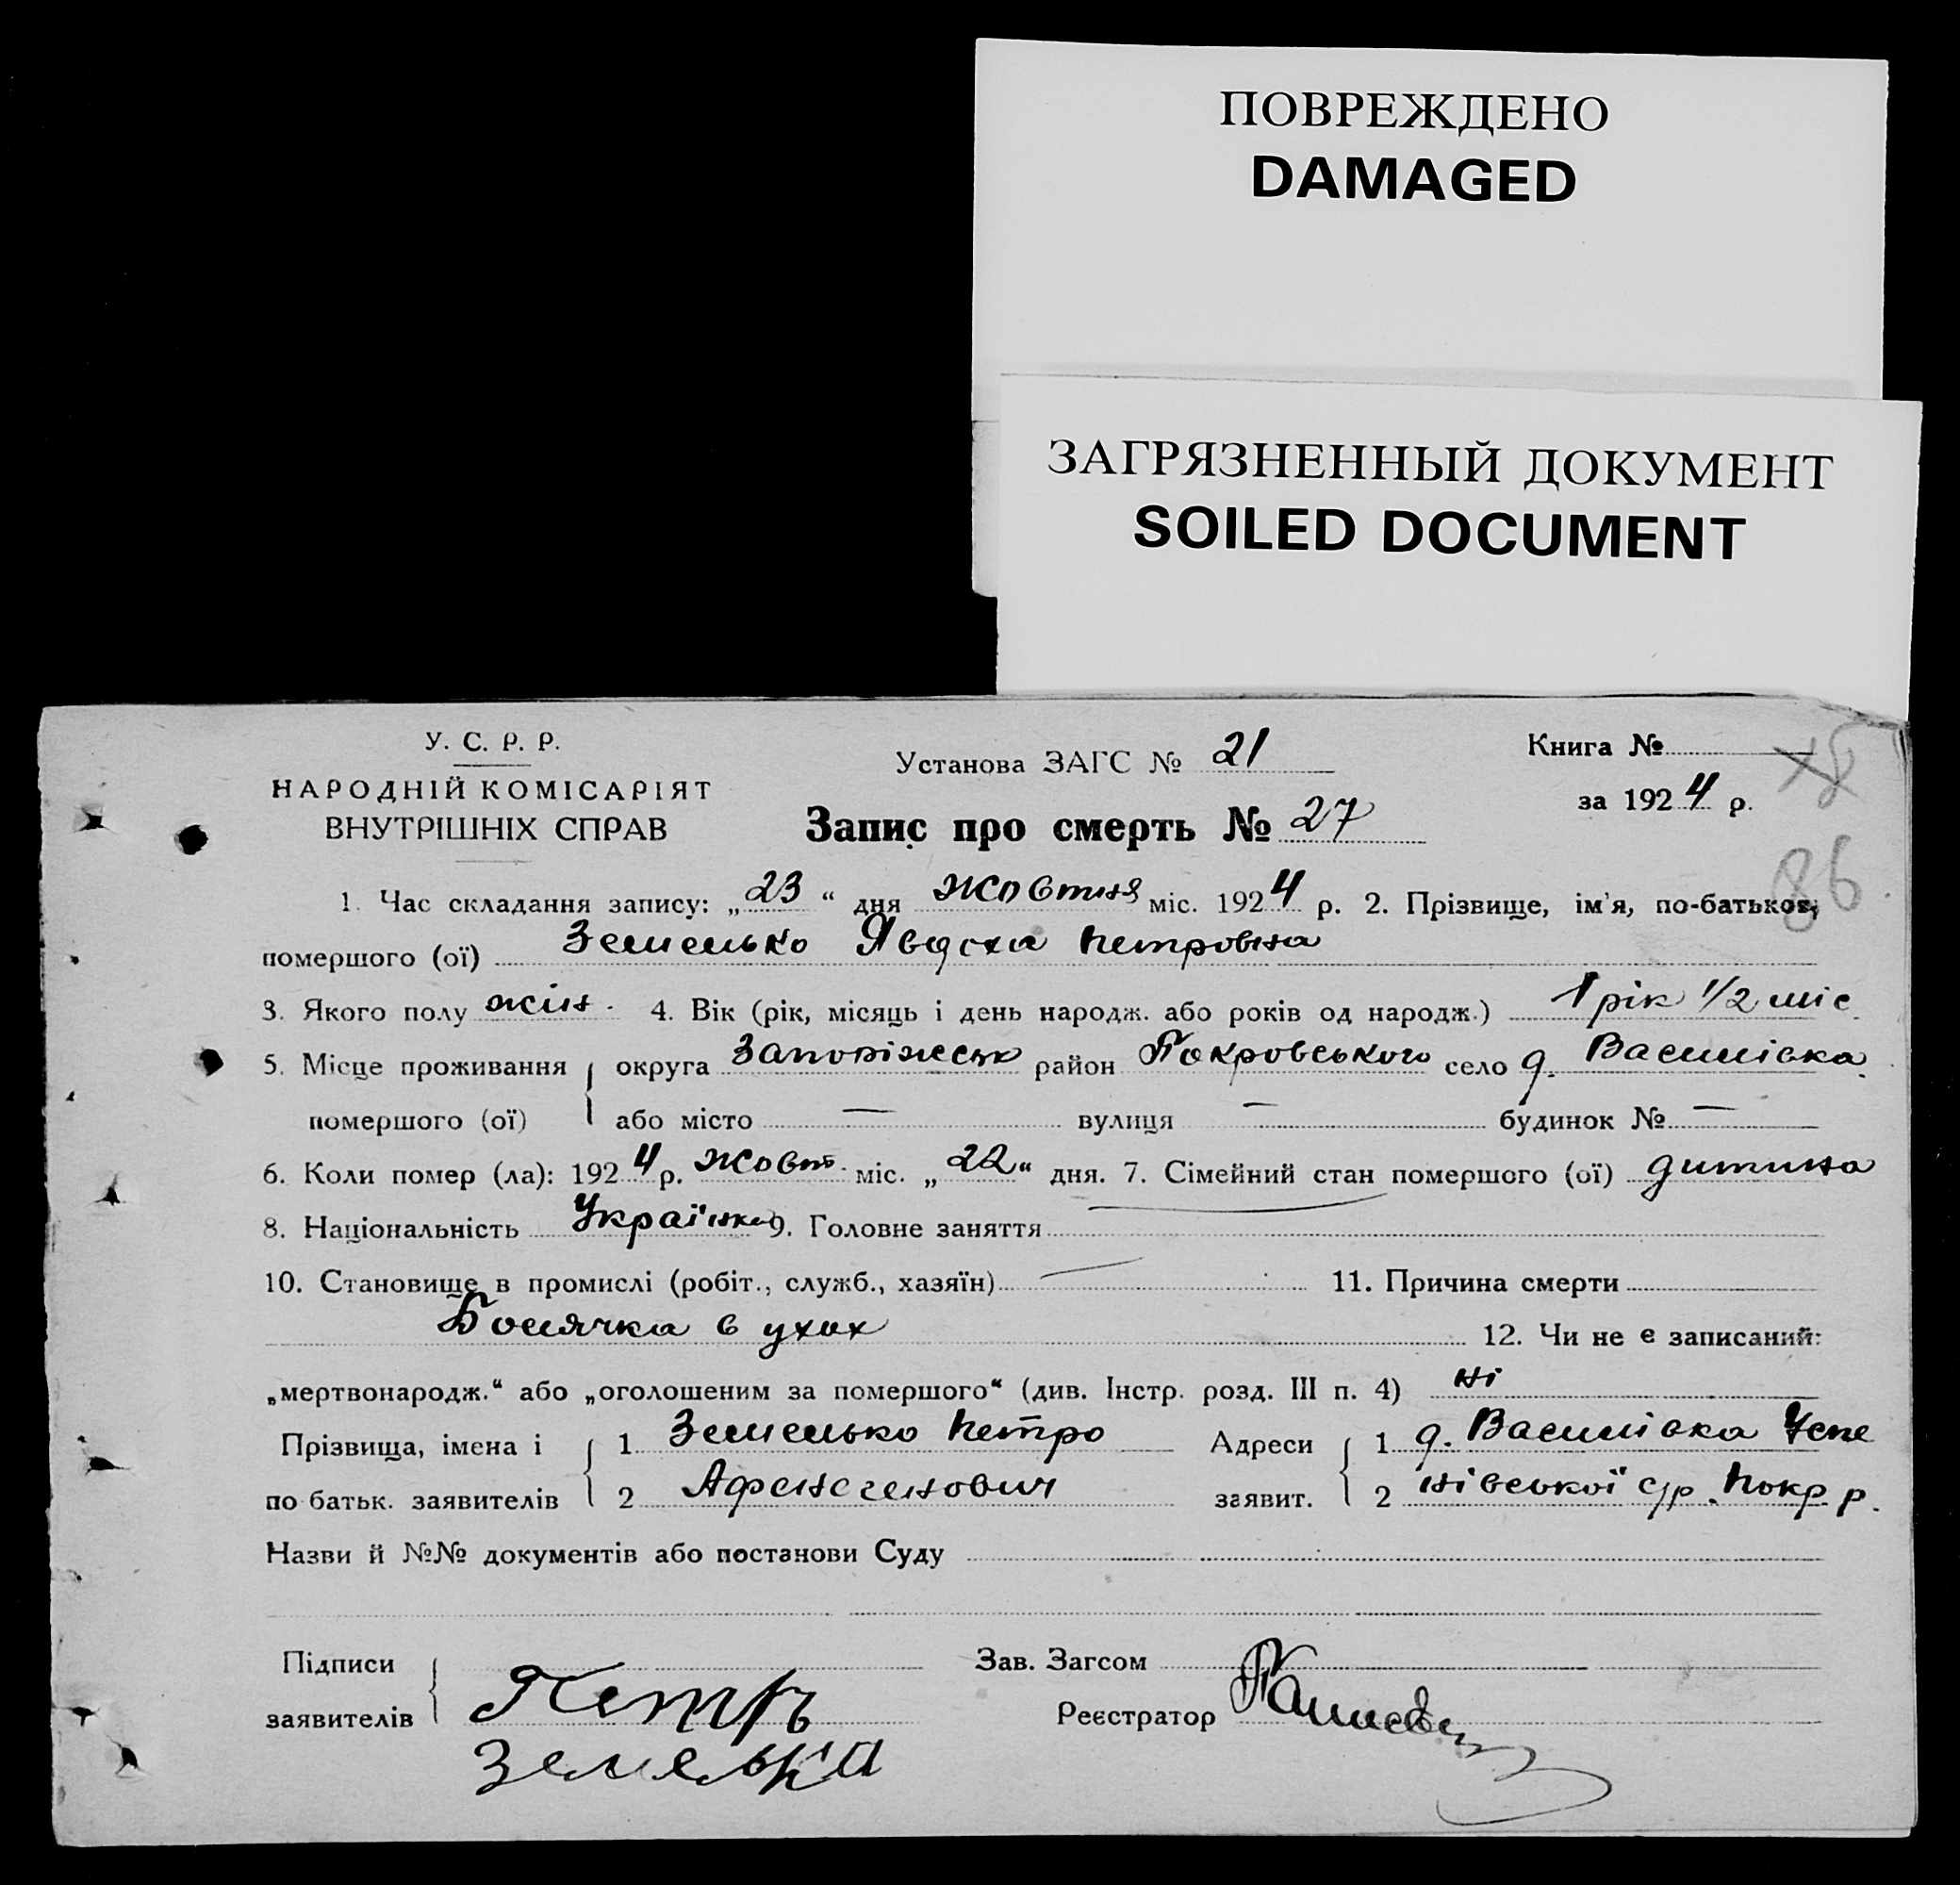 ПОВРЕЖДЕНО
DAMAGED
ЗАГРЯЗНЕННЫЙ ДОКУМЕНТ
SOILED DOCUMENT
У. С. Р. Р.
НАРОДНІЙ КОМІСАРІЯТ
ВНУТРІШНІХ СПРАВ
Установа ЗАГС № 21
Книга №
за 1924 р.
Запис про смерть № 27
86
1. Час складання запису: „23“ дня Жовтня міс. 1924 р. 2. Прізвище, ім'я, по-батькові
помершого (ої) Земелько Явдоха Петровна
3. Якого полу жін. 4. Вік (рік, місяць і день народж. або років од народж.) 1 рік 1/2 міс.
5. Місце проживання округа Запоріжськ район Покровського село д. Василівка
помершого (ої) або місто — вулиця — будинок № —
6. Коли помер (ла): 1924 р. Жовт. міс. „22“ дня. 7. Сімейний стан помершого (ої) дитина
8. Національність Українка 9. Головне заняття
10. Становище в промислі (робіт., служб., хазяїн) — 11. Причина смерти
Болячка в ухах 12. Чи не є записаний:
„мертвонародж.“ або „оголошеним за помершого“ (див. Інстр. розд. III п. 4) ні
Прізвища, імена і 1 Земелько Петро Адреси 1 д. Василівка Успе
по батьк. заявителів 2 заявит. 2 нівської с/р. Покр. р.
Назви й №№ документів або постанови Суду
Підписи Зав. Загсом
заявителів Петръ Реєстратор
Земелька